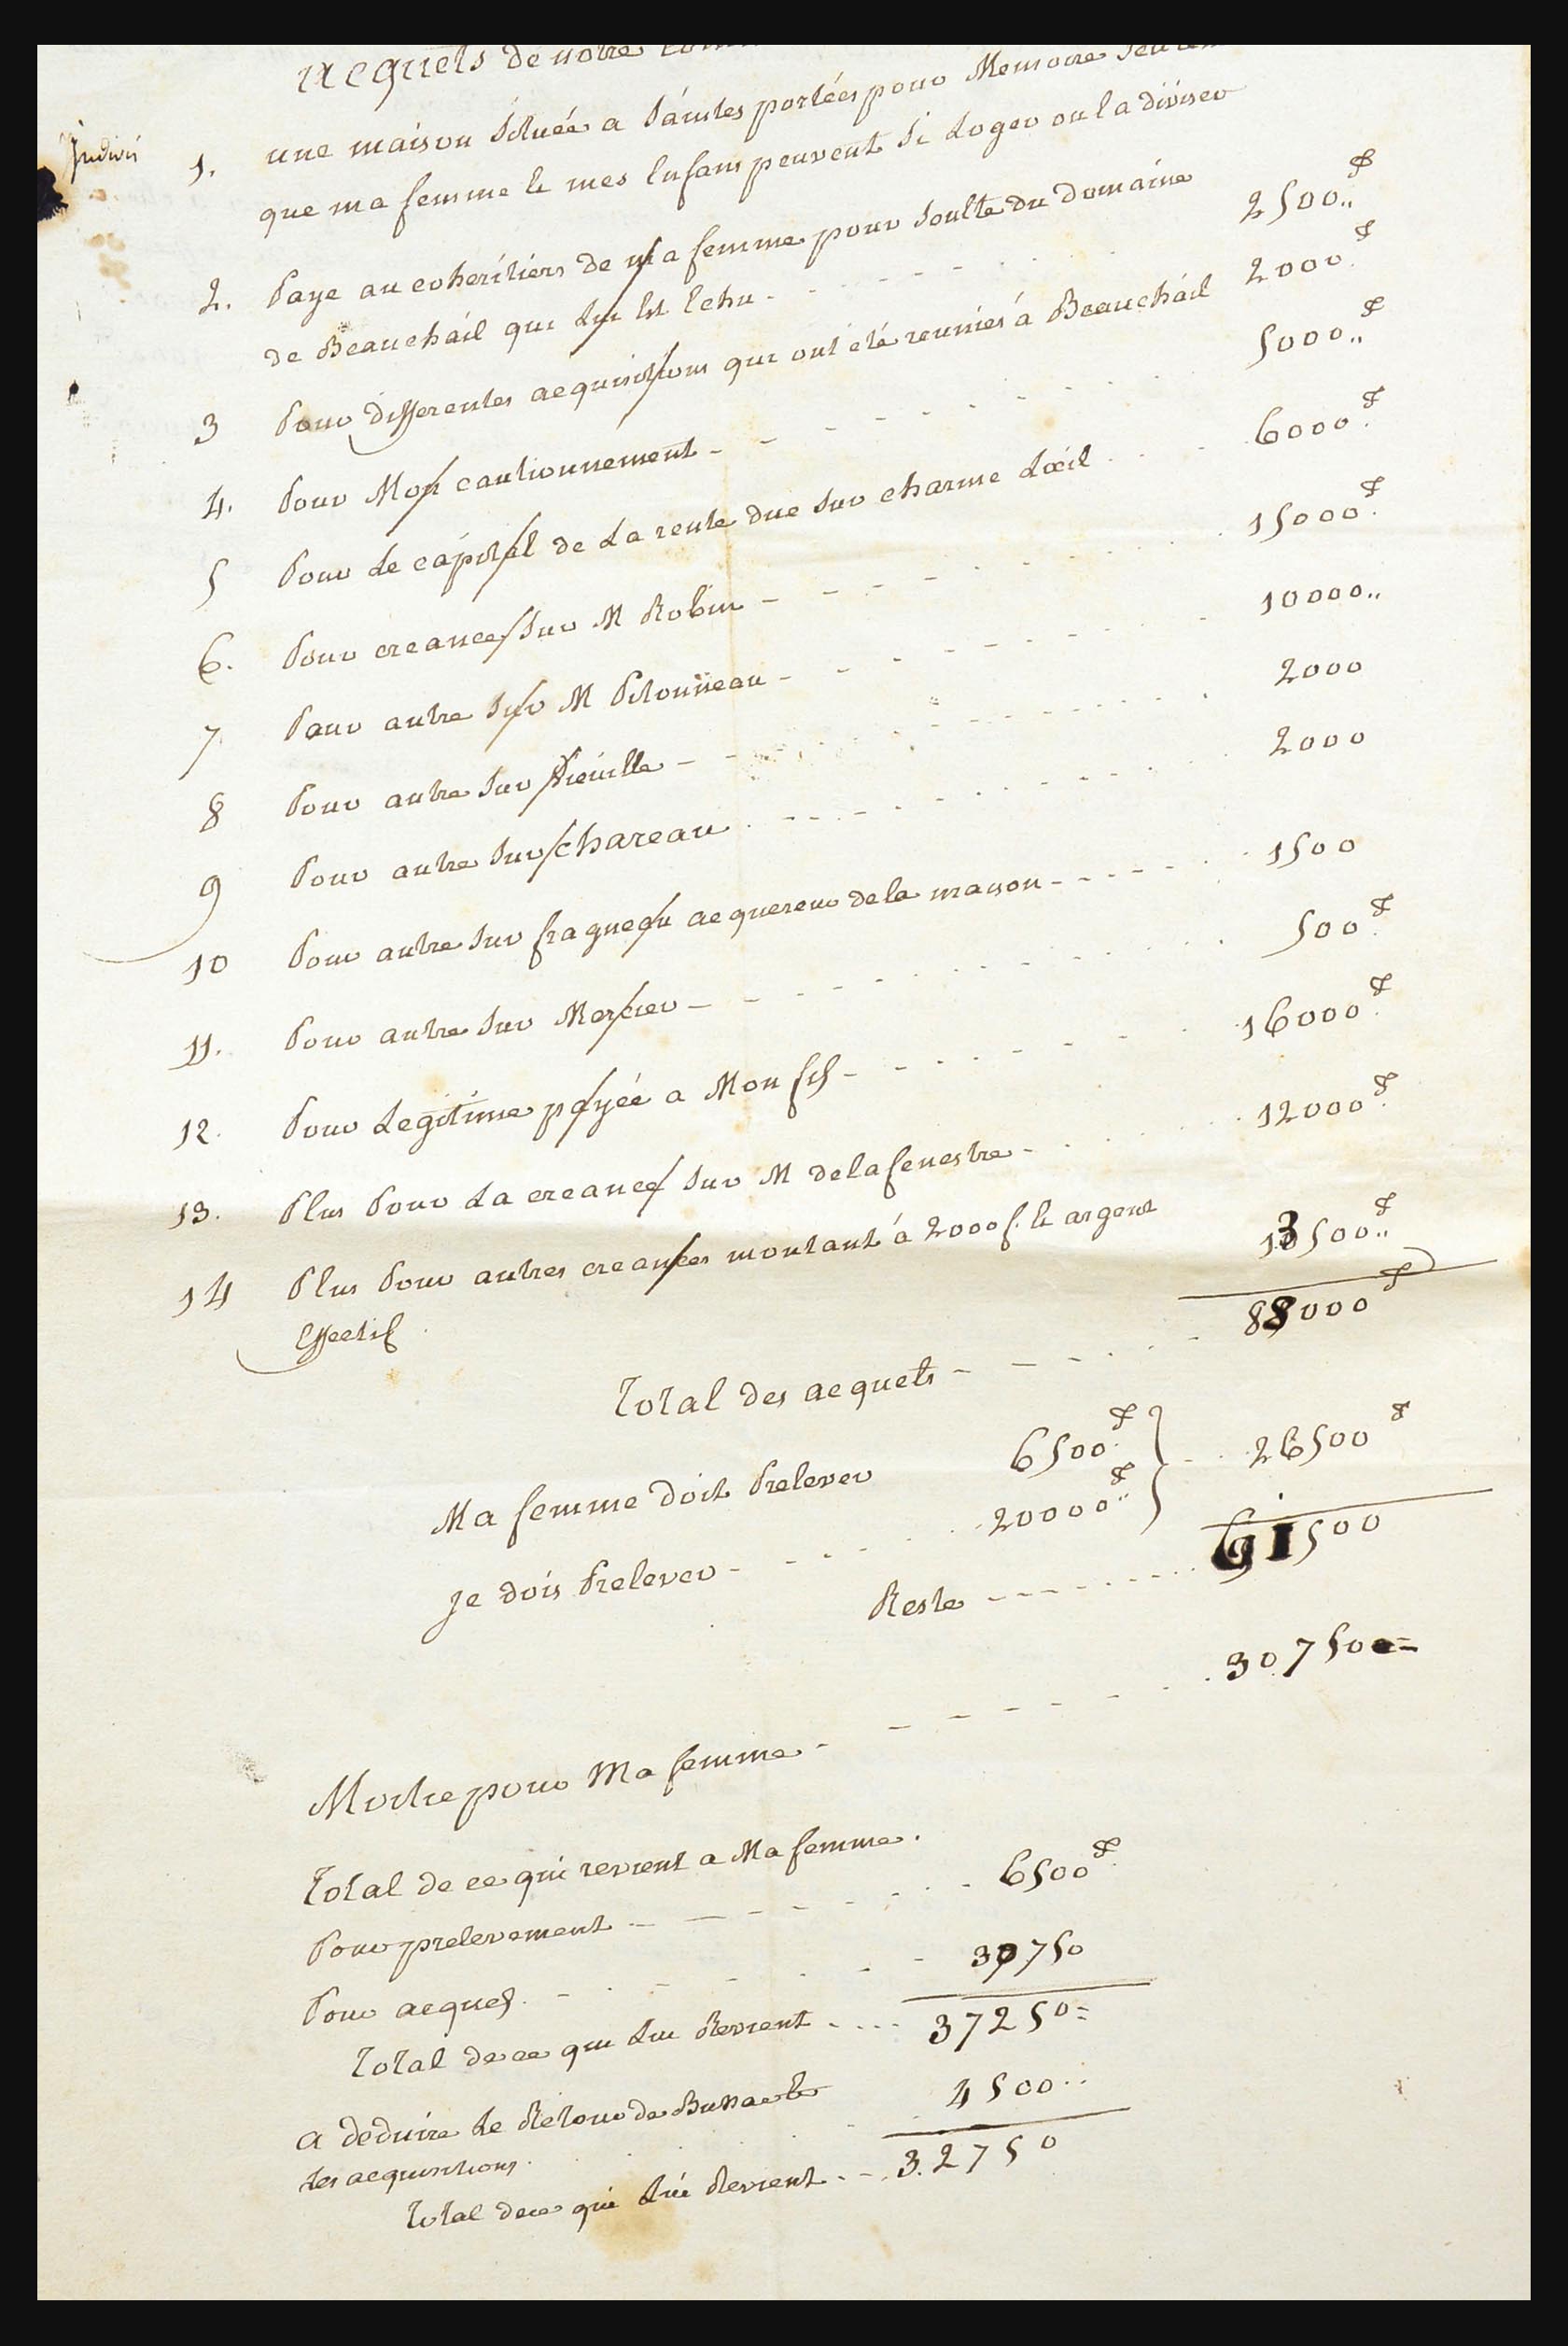 acquets de notre
indivis
1. une maison située a Saintes portées pour Memoire
que ma femme & mes Enfans peuvent si Loger ou la diviser
2. Paye au coheritiers de ma femme pour Soulte du Domaine
de Beauchail qui Lui Est Echu - - - - 2500..₶
3 Pour differentes acquisitions qui ont été reunies á Beauchail 2000.₶
4. Pour Mon cautionnement - - - - 5000..₶
5 Pour Le capital de La rente due Sur charme Lœil . . . 6000.₶
6. Pour creances Sur M Robin - - - - 15000.₶
7 Pour autre Sur M Pitonneau - - - - 10000..
8 Pour autre Sur - - - - 2000
9 Pour autre Sur chareau . - - - - 2000
10 Pour autre Sur acquereur de la maison - - - - 1500
11. Pour autre Sur Mercier - - - - 500.₶
12. Pour Legitime payée a Mon fils - - - - 16000.₶
13. Plus Pour La creance Sur M de lafenestre - . . . 12000.₶
14 Plus Pour autres creances montant á 2000 f. & argent
Effectif . 13500..₶
Total des acquets - - - - 88000₶
Ma femme doit Prelever 6500.₶
26500₶
Je dois Prelever - - - - 20000..₶
Reste - - - - 61500
Moitie pour Ma femme - - - - 30750=
Total de ce qui revient a Ma femme .
Pour prelevement - - - - 6500₶
Pour acquets . - - - - 30750
Total de ce qui Lui Revient - . . . 37250=
a deduire Le Retour de &
Les acquisitions . 4500..
Total de ce qui Lui Revient . - - . 32750